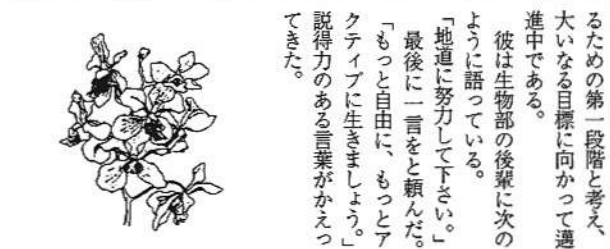 るための第一段階と考え、
大いなる目標に向かって邁
進中である。
彼は生物部の後輩に次の
ように語っている。
「地道に努力して下さい。」
最後に一言をと頼んだ。
「もっと自由に、もっとア
クティブに生きましょう。」
説得力のある言葉がかえっ
てきた。